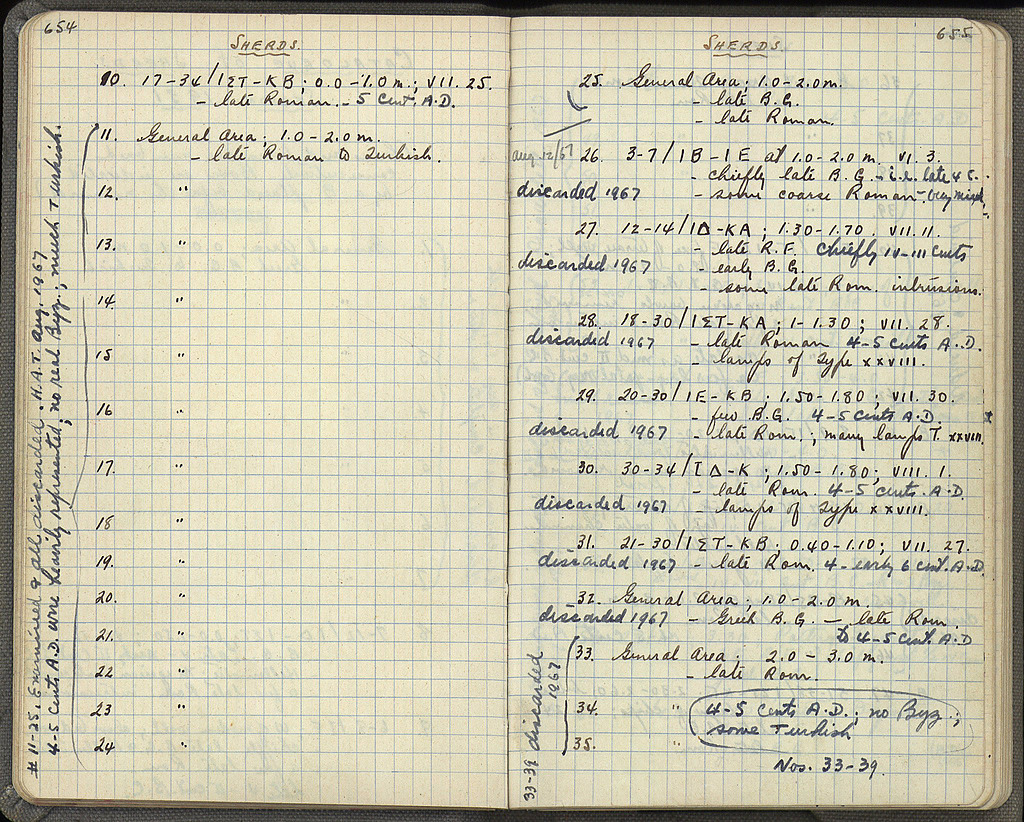 654
SHERDS.
10. 17-34/ΙΣΤ-ΚΒ; 0.0-1.0 m.; VII. 25.
- late Roman - 5 cent. A.D.
11. General Area; 1.0-2.0 m.
- late Roman to Turkish.
12. "
13. "
14. "
15 "
16 "
17. "
18 "
19. "
20. "
21. "
22 "
23 "
24 "
#11-25. Examined & all discarded. H.A.T. Aug. 1967
4-5 cents A.D. were heavily represented; no real Byz.; much Turkish.
655
SHERDS.
25. General Area; 1.0-2.0 m.
- late B.G.
- late Roman.
Aug. 12/67 26. 3-7/ΙΒ-ΙΕ at 1.0-2.0 m. VI. 3.
- chiefly late B.G. - i.e. late 4 c.
discarded 1967 - some coarse Roman - very mixed.
27. 12-14/ΙΔ-ΚΑ; 1.30-1.70. VII. 11.
- late R.F. chiefly IV-III cents
discarded 1967 - early B.G.
- some late Rom. intrusions.
28. 18-30/ΙΣΤ-ΚΑ; 1-1.30; VII. 28.
discarded 1967 - late Roman 4-5 cents A.D.
- lamps of Type XXVIII.
29. 20-30/ΙΕ-ΚΒ; 1.50-1.80; VII. 30.
- few B.G. 4-5 cents A.D.
discarded 1967 - late Rom.; many lamps T. XXVIII.
30. 30-34/ΙΔ-Κ; 1.50-1.80; VIII. 1.
- late Rom. 4-5 cents. A.D.
discarded 1967 - lamps of Type XXVIII.
31. 21-30/ΙΣΤ-ΚΒ; 0.40-1.10; VII. 27.
discarded 1967 - late Rom. 4 - early 6 cent. A.D.
32. General Area; 1.0-2.0 m.
discarded 1967 - Greek B.G. - late Rom.
to 4-5 cent. A.D
33. General Area; 2.0-3.0 m.
- late Rom.
34. " 4-5 cents A.D.; no Byz.;
some Turkish
35. "
Nos. 33-39.
33-39 discarded
1967